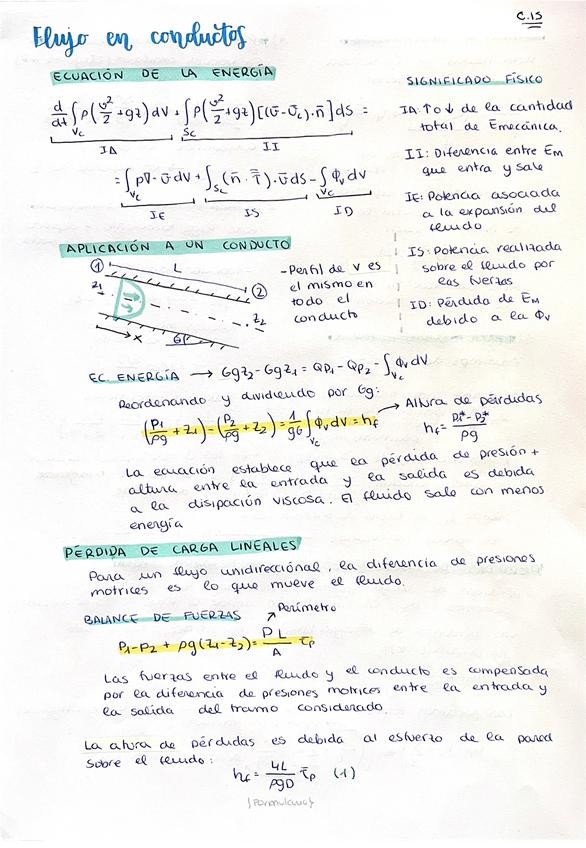 C.15
Flujo en conductos
ECUACIÓN DE LA ENERGÍA
d/dt ∫_Vc ρ(v²/2 + gz) dV + ∫_Sc ρ(v²/2 + gz)[(v̄ - v̄c)·n̄] dS =
IA II
= ∫_Vc p∇·v̄ dV + ∫_Sc (n̄·T̿)·v̄ dS - ∫_Vc ϕv dV
IE IS ID
SIGNIFICADO FÍSICO
IA: ↑ o ↓ de la cantidad
total de Emecánica.
II: Diferencia entre EM
que entra y sale
IE: Potencia asociada
a la expansión del
fluido
IS: Potencia realizada
sobre el fluido por
las fuerzas
ID: Pérdida de EM
debido a la ϕv
APLICACIÓN A UN CONDUCTO
① L ②
z1 z2
x
-Perfil de v es
el mismo en
todo el
conducto
EC. ENERGÍA → Ggz2 - Ggz1 = Qp1 - Qp2 - ∫_Vc ϕv dV
Reordenando y dividiendo por Gg:
(P1/ρg + z1) - (P2/ρg + z2) = 1/gG ∫_Vc ϕv dV = hf → Altura de pérdidas
hf = (p1* - p2*)/ρg
La ecuación establece que la pérdida de presión +
altura entre la entrada y la salida es debida
a la disipación viscosa. El fluido sale con menos
energía
PÉRDIDA DE CARGA LINEALES
Para un flujo unidireccional, la diferencia de presiones
motrices es lo que mueve el fluido.
BALANCE DE FUERZAS ↗ Perímetro
P1 - P2 + ρg(z1 - z2) = PL/A τp
Las fuerzas entre el fluido y el conducto es compensada
por la diferencia de presiones motrices entre la entrada y
la salida del tramo considerado.
La altura de pérdidas es debida al esfuerzo de la pared
sobre el fluido:
hf = 4L/ρgD τ̄p (1)
(Formulario)